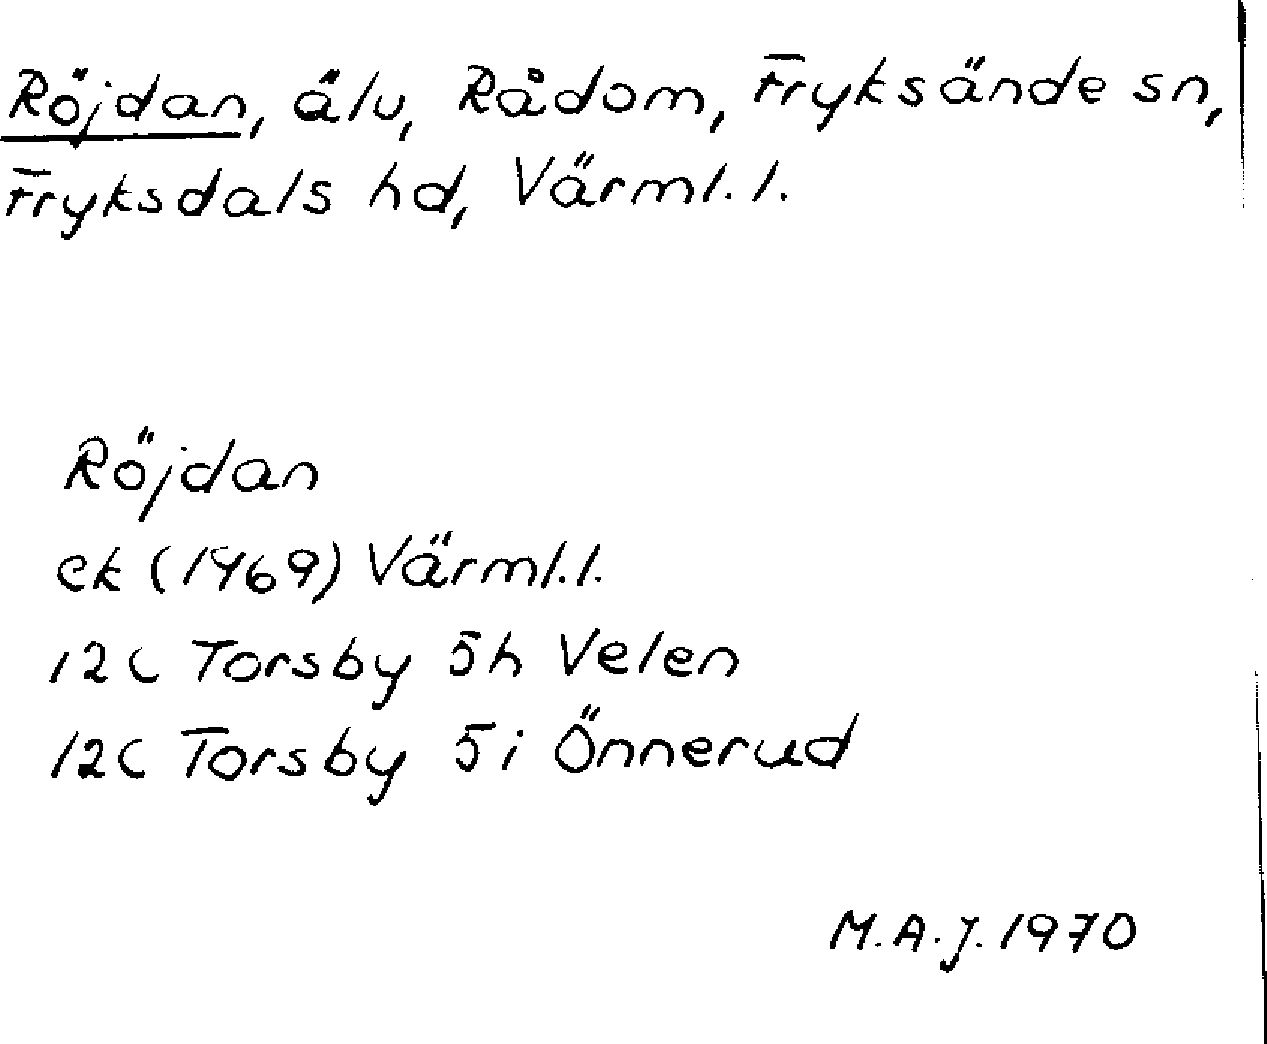 Röjdan, älv, Rådom, Fryksände sn,
Fryksdals hd, Värml. l.
Röjdan
ek (1969) Värml. l.
12C Torsby 5h Velen
12C Torsby 5i Önnerud
M.A.J. 1970